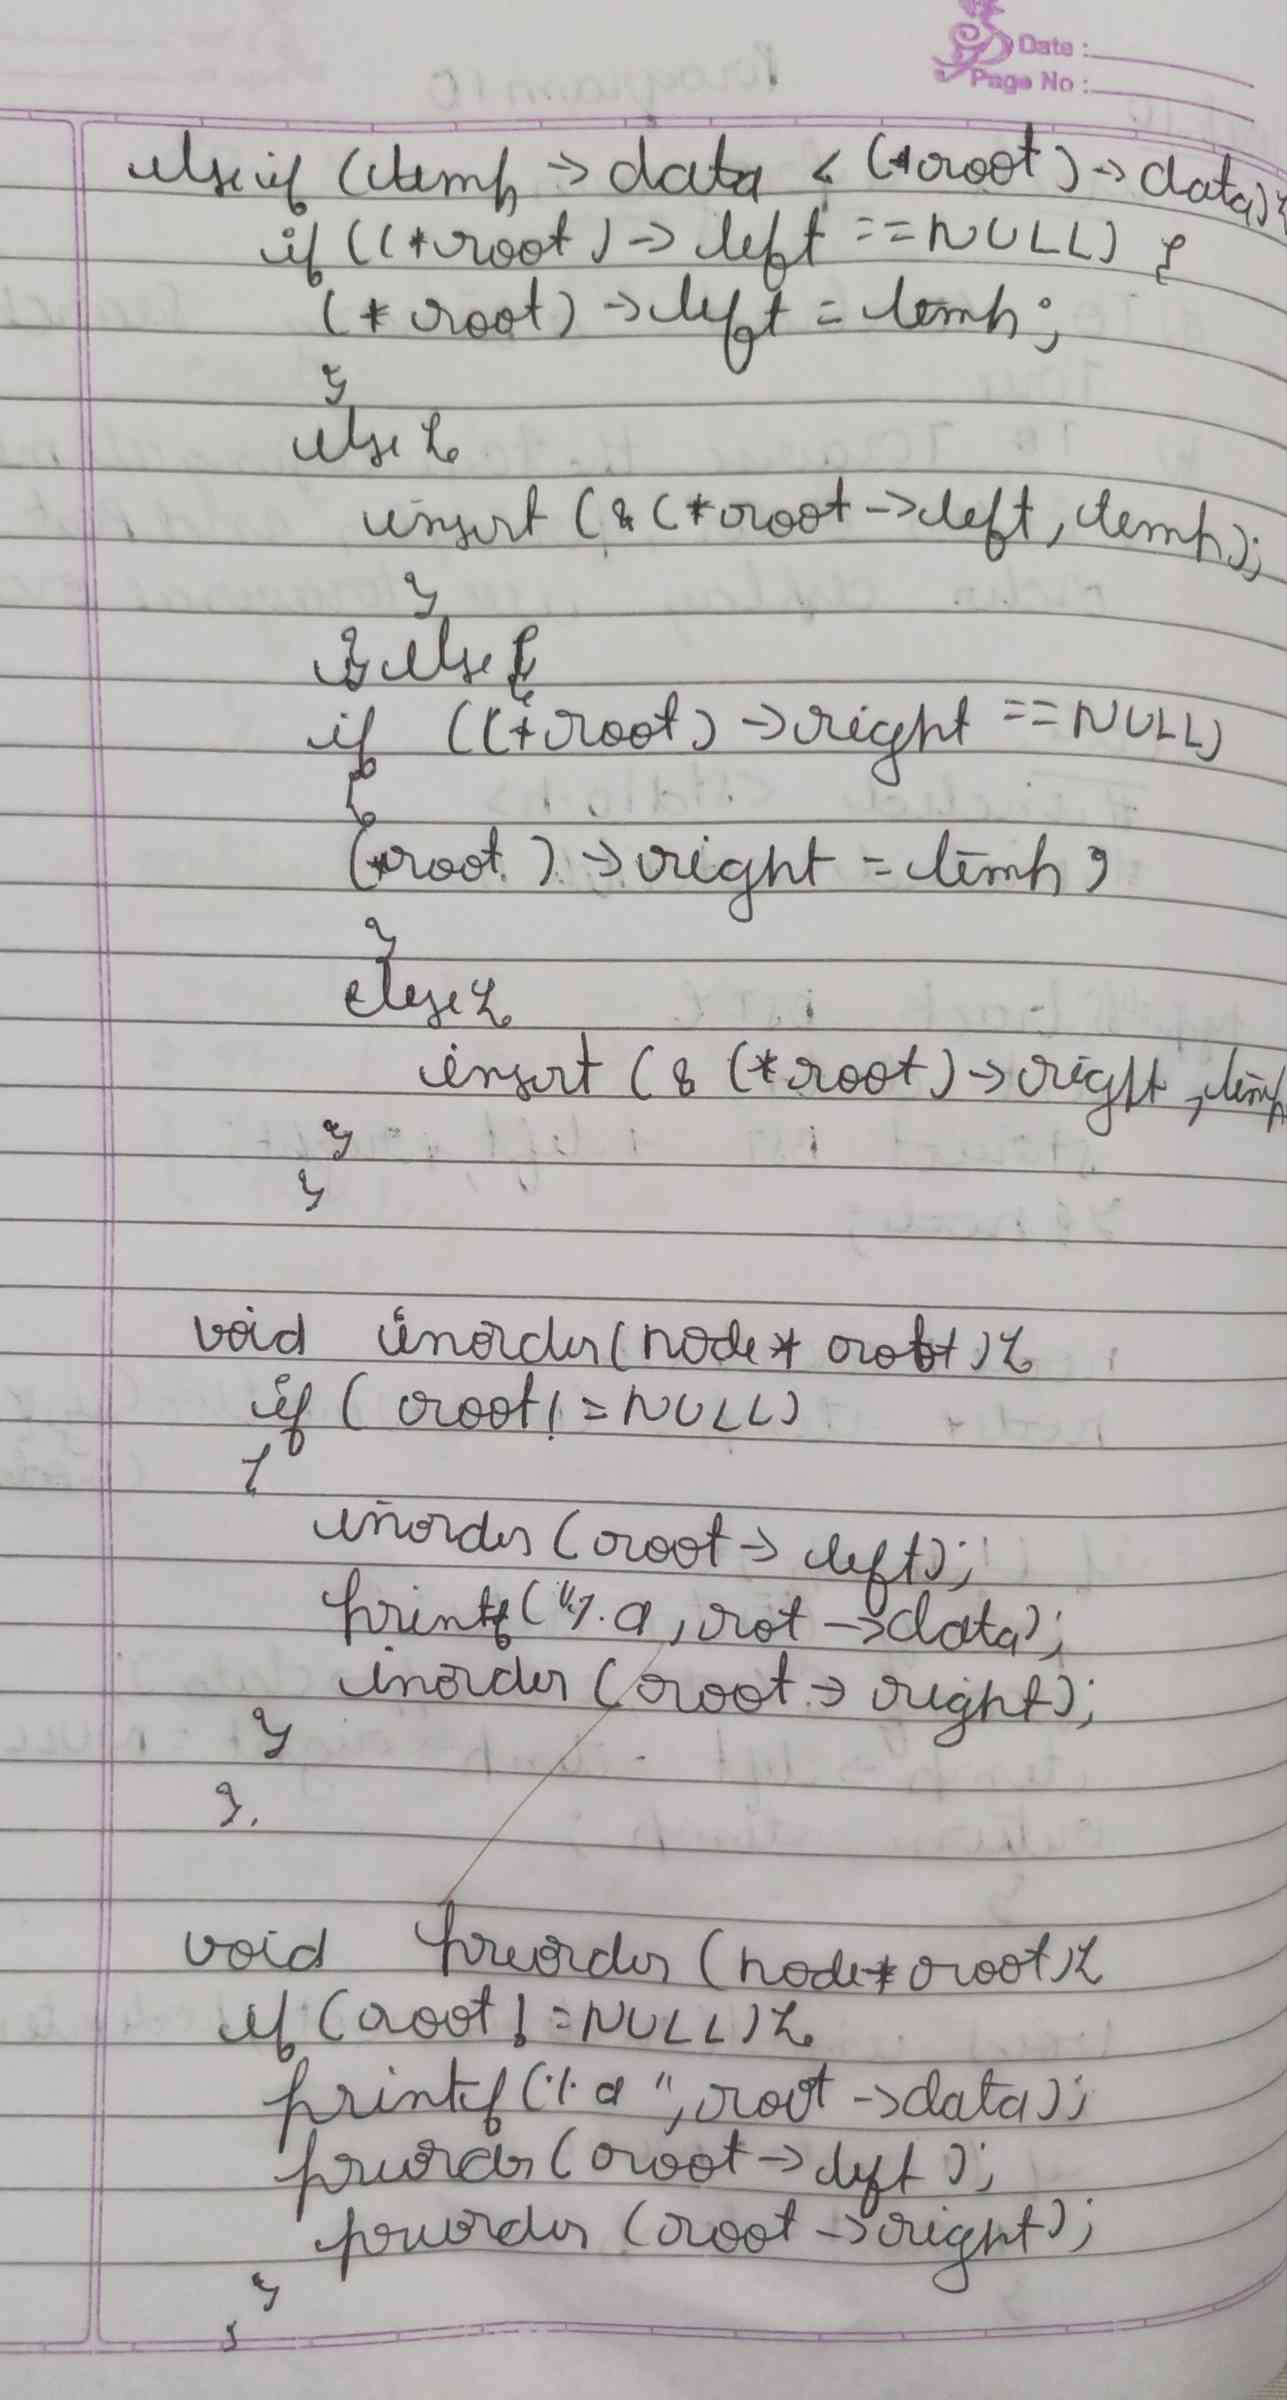 Date :
Page No :
else if (temp -> data < (*root) -> data) {
if ((*root) -> left == NULL) {
(* root) -> left = temp;
}
else {
insert (& (*root -> left, temp);
}
} else {
if ((*root) -> right == NULL)
{
(*root) -> right = temp ;
}
else {
insert (& (*root) -> right, temp
}
}
void inorder (node * root) {
if ( root != NULL)
{
inorder (root -> left);
printf ("%d , rot -> data);
inorder (root -> right);
}
}.
void preorder (node * root) {
if (root != NULL) {
printf (%d ", root -> data);
preorder (root -> left );
preorder (root -> right);
}
}